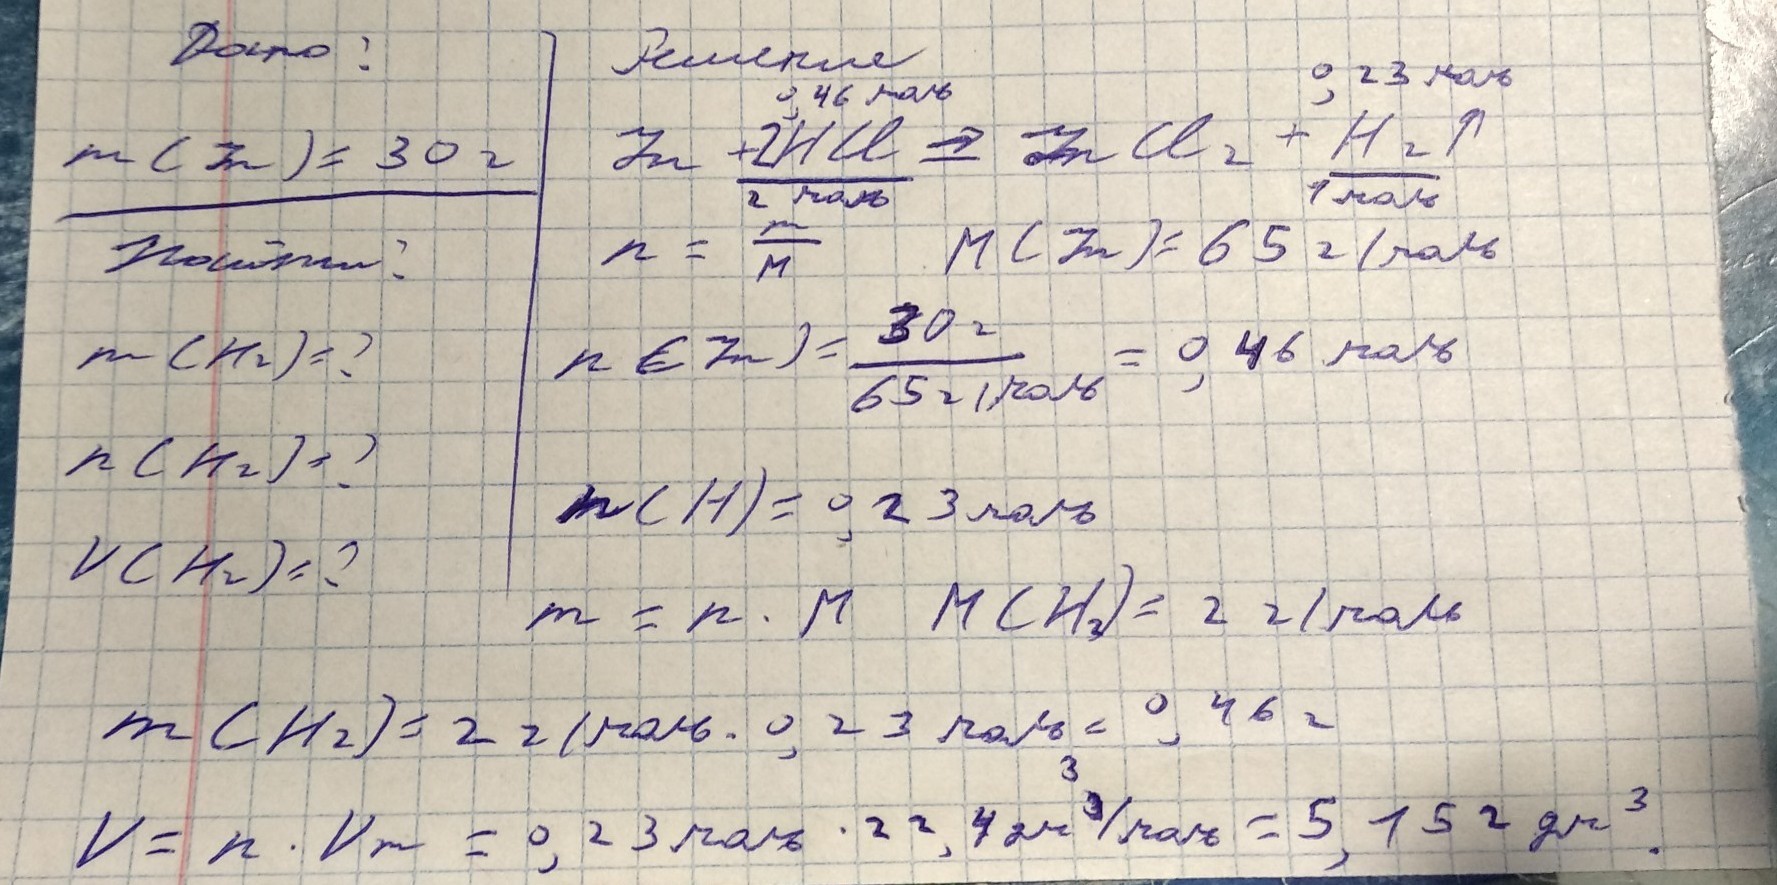 Дано:
m(Zn) = 30 г
Найти:
m(H₂)=?
n(H₂)=?
V(H₂)=?
Решение
0,46 моль 0,23 моль
Zn + 2HCl = ZnCl₂ + H₂↑
2 моль 1 моль
n = m/M M(Zn)= 65 г/моль
n(Zn)= 30 г / 65 г/моль = 0,46 моль
n(H)= 0,23 моль
m = n · M M(H₂)= 2 г/моль
m(H₂)= 2 г/моль · 0,23 моль = 0,46 г
V = n · Vm = 0,23 моль · 22,4 дм³/моль = 5,152 дм³.